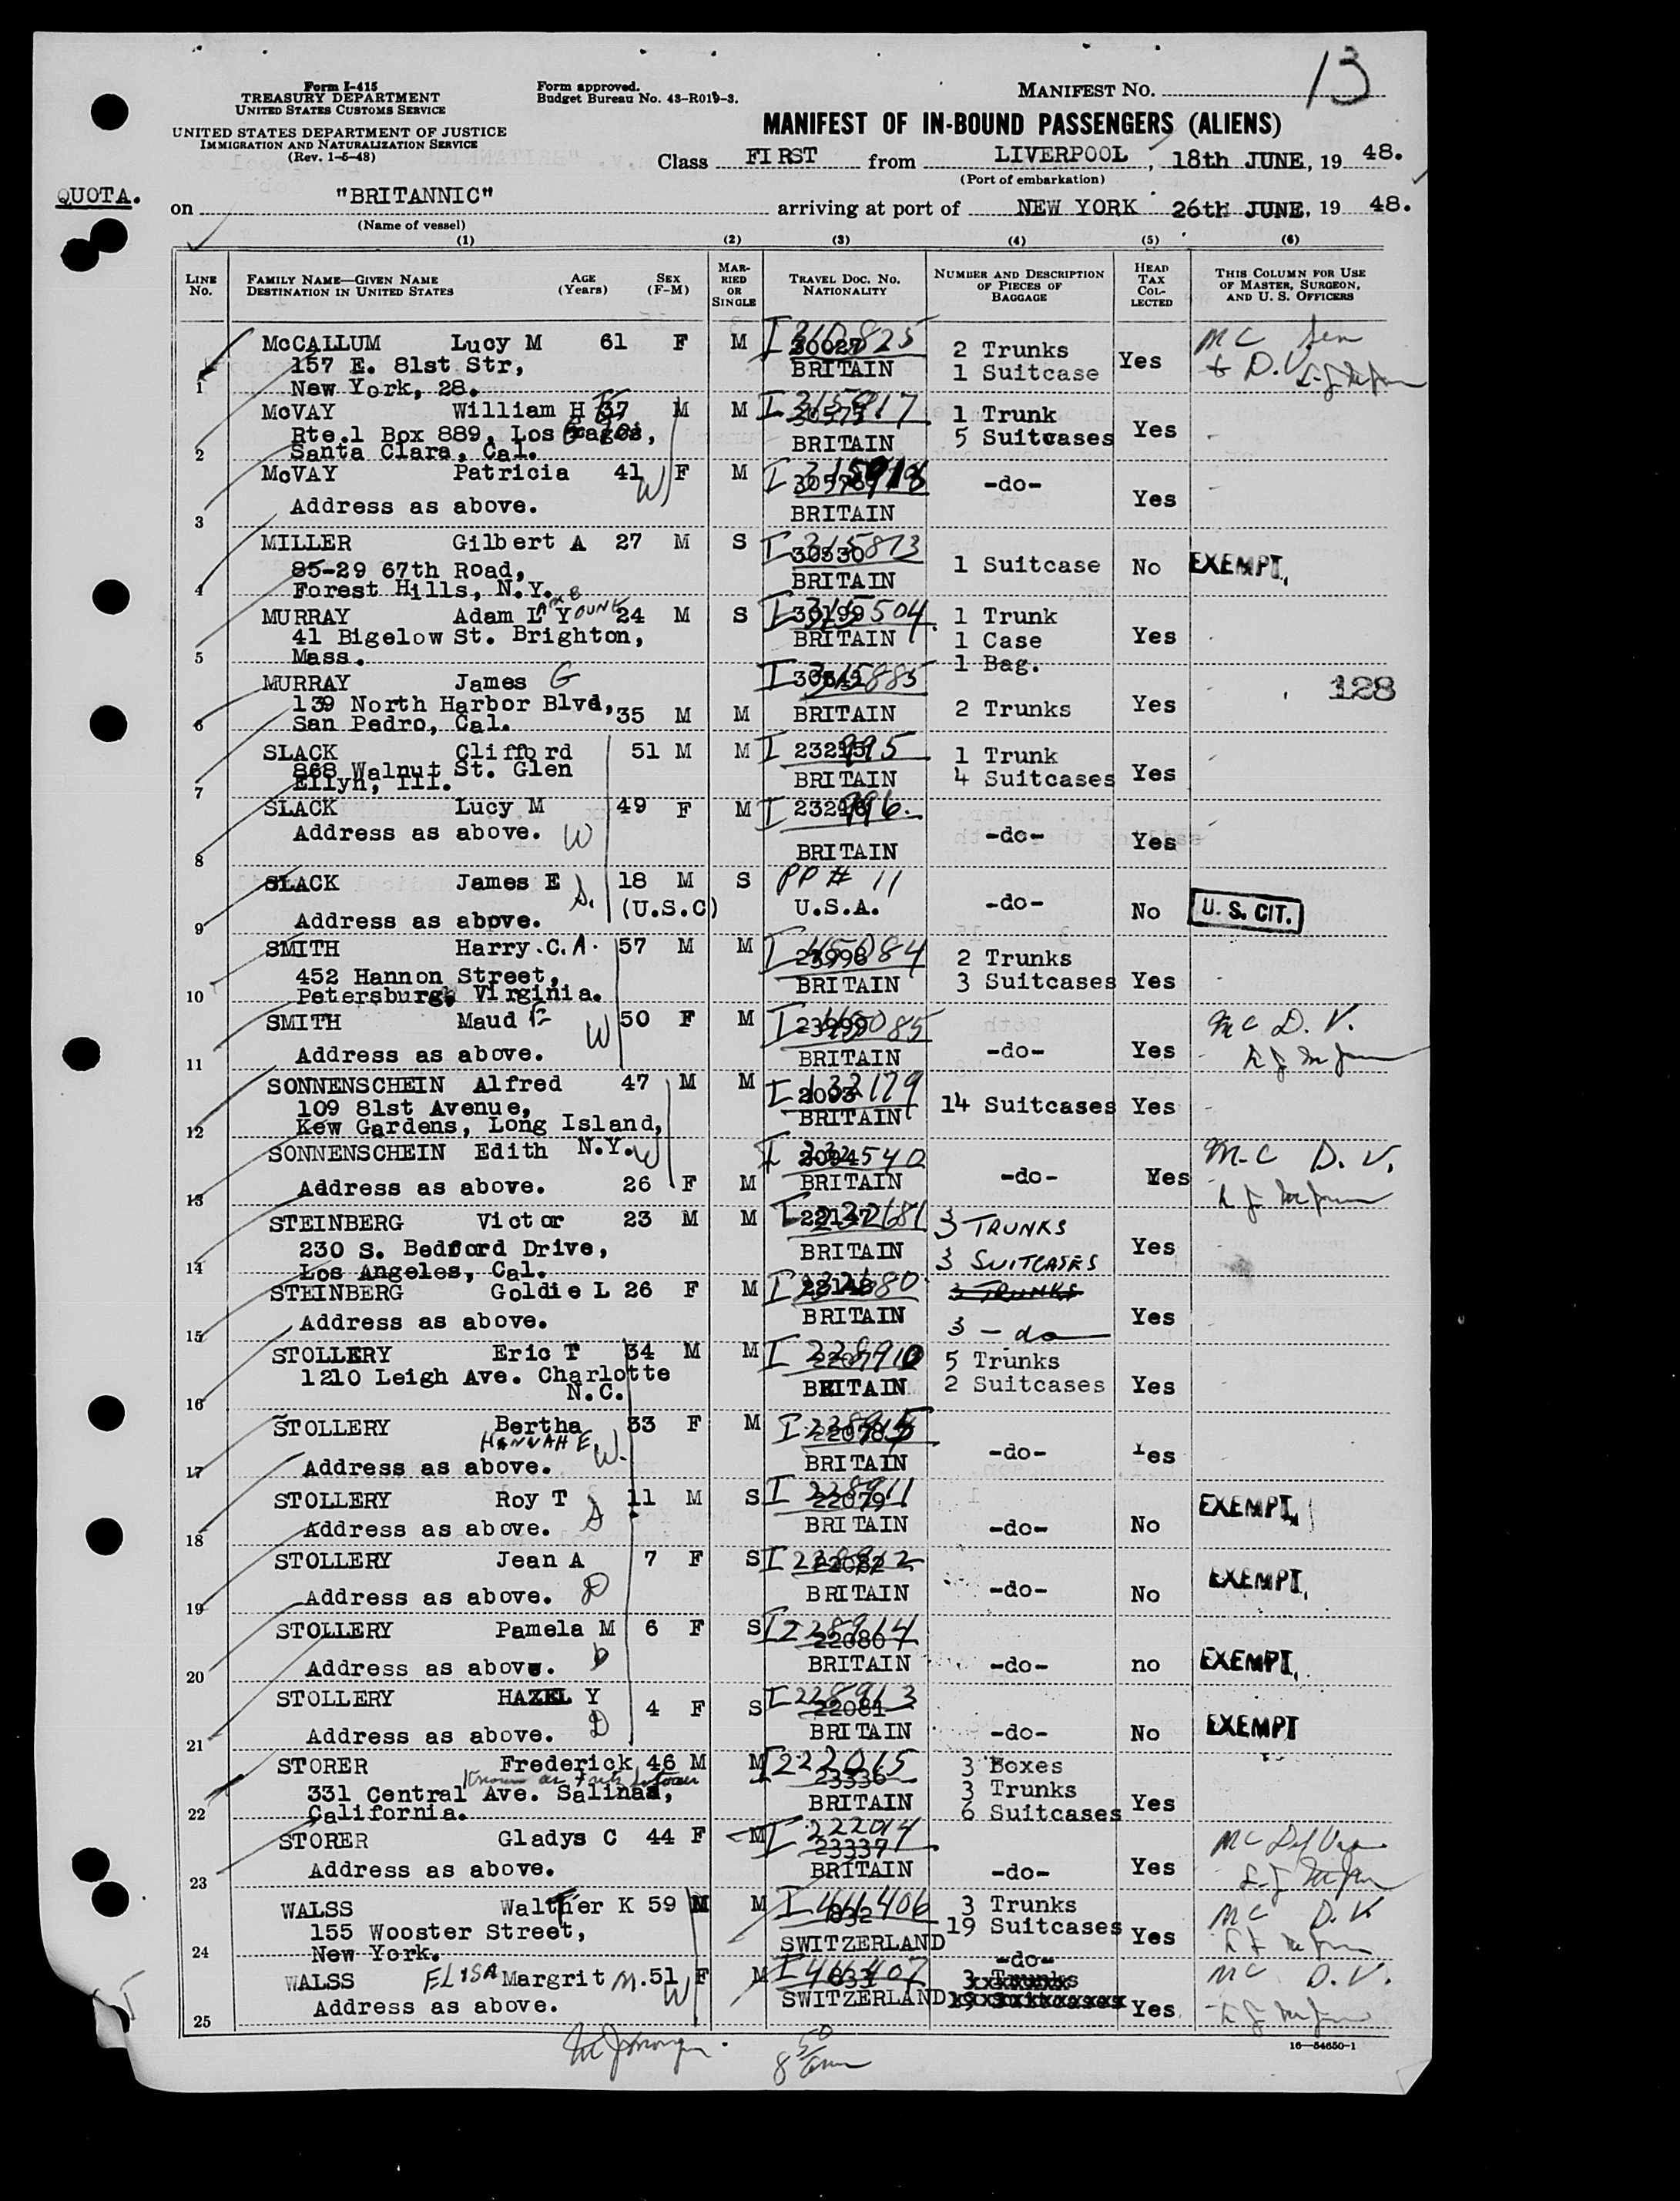 13
Form I-415
TREASURY DEPARTMENT
UNITED STATES CUSTOMS SERVICE
UNITED STATES DEPARTMENT OF JUSTICE
IMMIGRATION AND NATURALIZATION SERVICE
(Rev. 1-5-48)
Form approved.
Budget Bureau No. 43-R019-3.
MANIFEST No.
MANIFEST OF IN-BOUND PASSENGERS (ALIENS)
Class FIRST from LIVERPOOL, 18th JUNE, 19 48.
(Port of embarkation)
QUOTA.
on "BRITANNIC" arriving at port of NEW YORK 26th JUNE, 19 48.
(Name of vessel)
(1) (2) (3) (4) (5) (6)
LINE No. FAMILY NAME—GIVEN NAME DESTINATION IN UNITED STATES AGE (Years) SEX (F-M) MARRIED OR SINGLE TRAVEL DOC. No. NATIONALITY NUMBER AND DESCRIPTION OF PIECES OF BAGGAGE HEAD TAX COLLECTED THIS COLUMN FOR USE OF MASTER, SURGEON, AND U. S. OFFICERS
McCALLUM Lucy M 61 F M 2 Trunks
157 E. 81st Str, BRITAIN 1 Suitcase Yes
1 New York, 28.
McVAY William H 37 M M 1 Trunk
Rte.1 Box 889, Los Gatos, BRITAIN 5 Suitcases Yes
2 Santa Clara, Cal.
McVAY Patricia 41 W F M -do- Yes
3 Address as above. BRITAIN
MILLER Gilbert A 27 M S 1 Suitcase No EXEMPT
85-29 67th Road, BRITAIN
4 Forest Hills, N.Y.
MURRAY Adam L YOUNG 24 M S 1 Trunk
41 Bigelow St. Brighton, BRITAIN 1 Case Yes
5 Mass. 1 Bag.
MURRAY James G 128
139 North Harbor Blvd, 35 M M BRITAIN 2 Trunks Yes
6 San Pedro, Cal.
SLACK Clifford 51 M M 1 Trunk
868 Walnut St. Glen BRITAIN 4 Suitcases Yes
7 Ellyn, Ill.
SLACK Lucy M 49 F M
Address as above. W -do- Yes
8 BRITAIN
SLACK James E 18 M S PP # 11
9 Address as above. S. (U.S.C) U.S.A. -do- No U. S. CIT.
SMITH Harry C. A. 57 M M 2 Trunks
452 Hannon Street, BRITAIN 3 Suitcases Yes
10 Petersburg, Virginia.
SMITH Maud E 50 F M MC D. V.
11 Address as above. W BRITAIN -do- Yes
SONNENSCHEIN Alfred 47 M M
109 81st Avenue, BRITAIN 14 Suitcases Yes
12 Kew Gardens, Long Island,
SONNENSCHEIN Edith N.Y. W M.C D. V.
13 Address as above. 26 F M BRITAIN -do- Yes
STEINBERG Victor 23 M M 3 TRUNKS
230 S. Bedford Drive, BRITAIN 3 SUITCASES Yes
14 Los Angeles, Cal.
STEINBERG Goldie L 26 F M 3 TRUNKS
15 Address as above. BRITAIN 3 - do Yes
STOLLERY Eric T 34 M M I 228910 5 Trunks
1210 Leigh Ave. Charlotte BRITAIN 2 Suitcases Yes
16 N.C.
STOLLERY Bertha 33 F M
HANNAH E. W.
17 Address as above. BRITAIN -do- Yes
STOLLERY Roy T 11 M S I 228911 22079 EXEMPT
18 Address as above. S BRITAIN -do- No
STOLLERY Jean A 7 F S I 228912 22082 EXEMPT
19 Address as above. D BRITAIN -do- No
STOLLERY Pamela M 6 F S I 228914 22080
20 Address as above. D BRITAIN -do- no EXEMPT
STOLLERY HAZEL Y 4 F S I 228913 22081
21 Address as above. D BRITAIN -do- No EXEMPT
STORER Frederick 46 M M I 222015 23336 3 Boxes
Known as
331 Central Ave. Salinas, 3 Trunks
22 California. BRITAIN 6 Suitcases Yes
STORER Gladys C 44 F M I 222014 23337
23 Address as above. BRITAIN -do- Yes
WALSS Walther K 59 M M 3 Trunks
155 Wooster Street, 19 Suitcases Yes MC D.V.
24 New York. SWITZERLAND
WALSS ELISA Margrit M. 51 F M -do- MC D.V.
25 Address as above. W SWITZERLAND Yes
8 50
16—54650-1